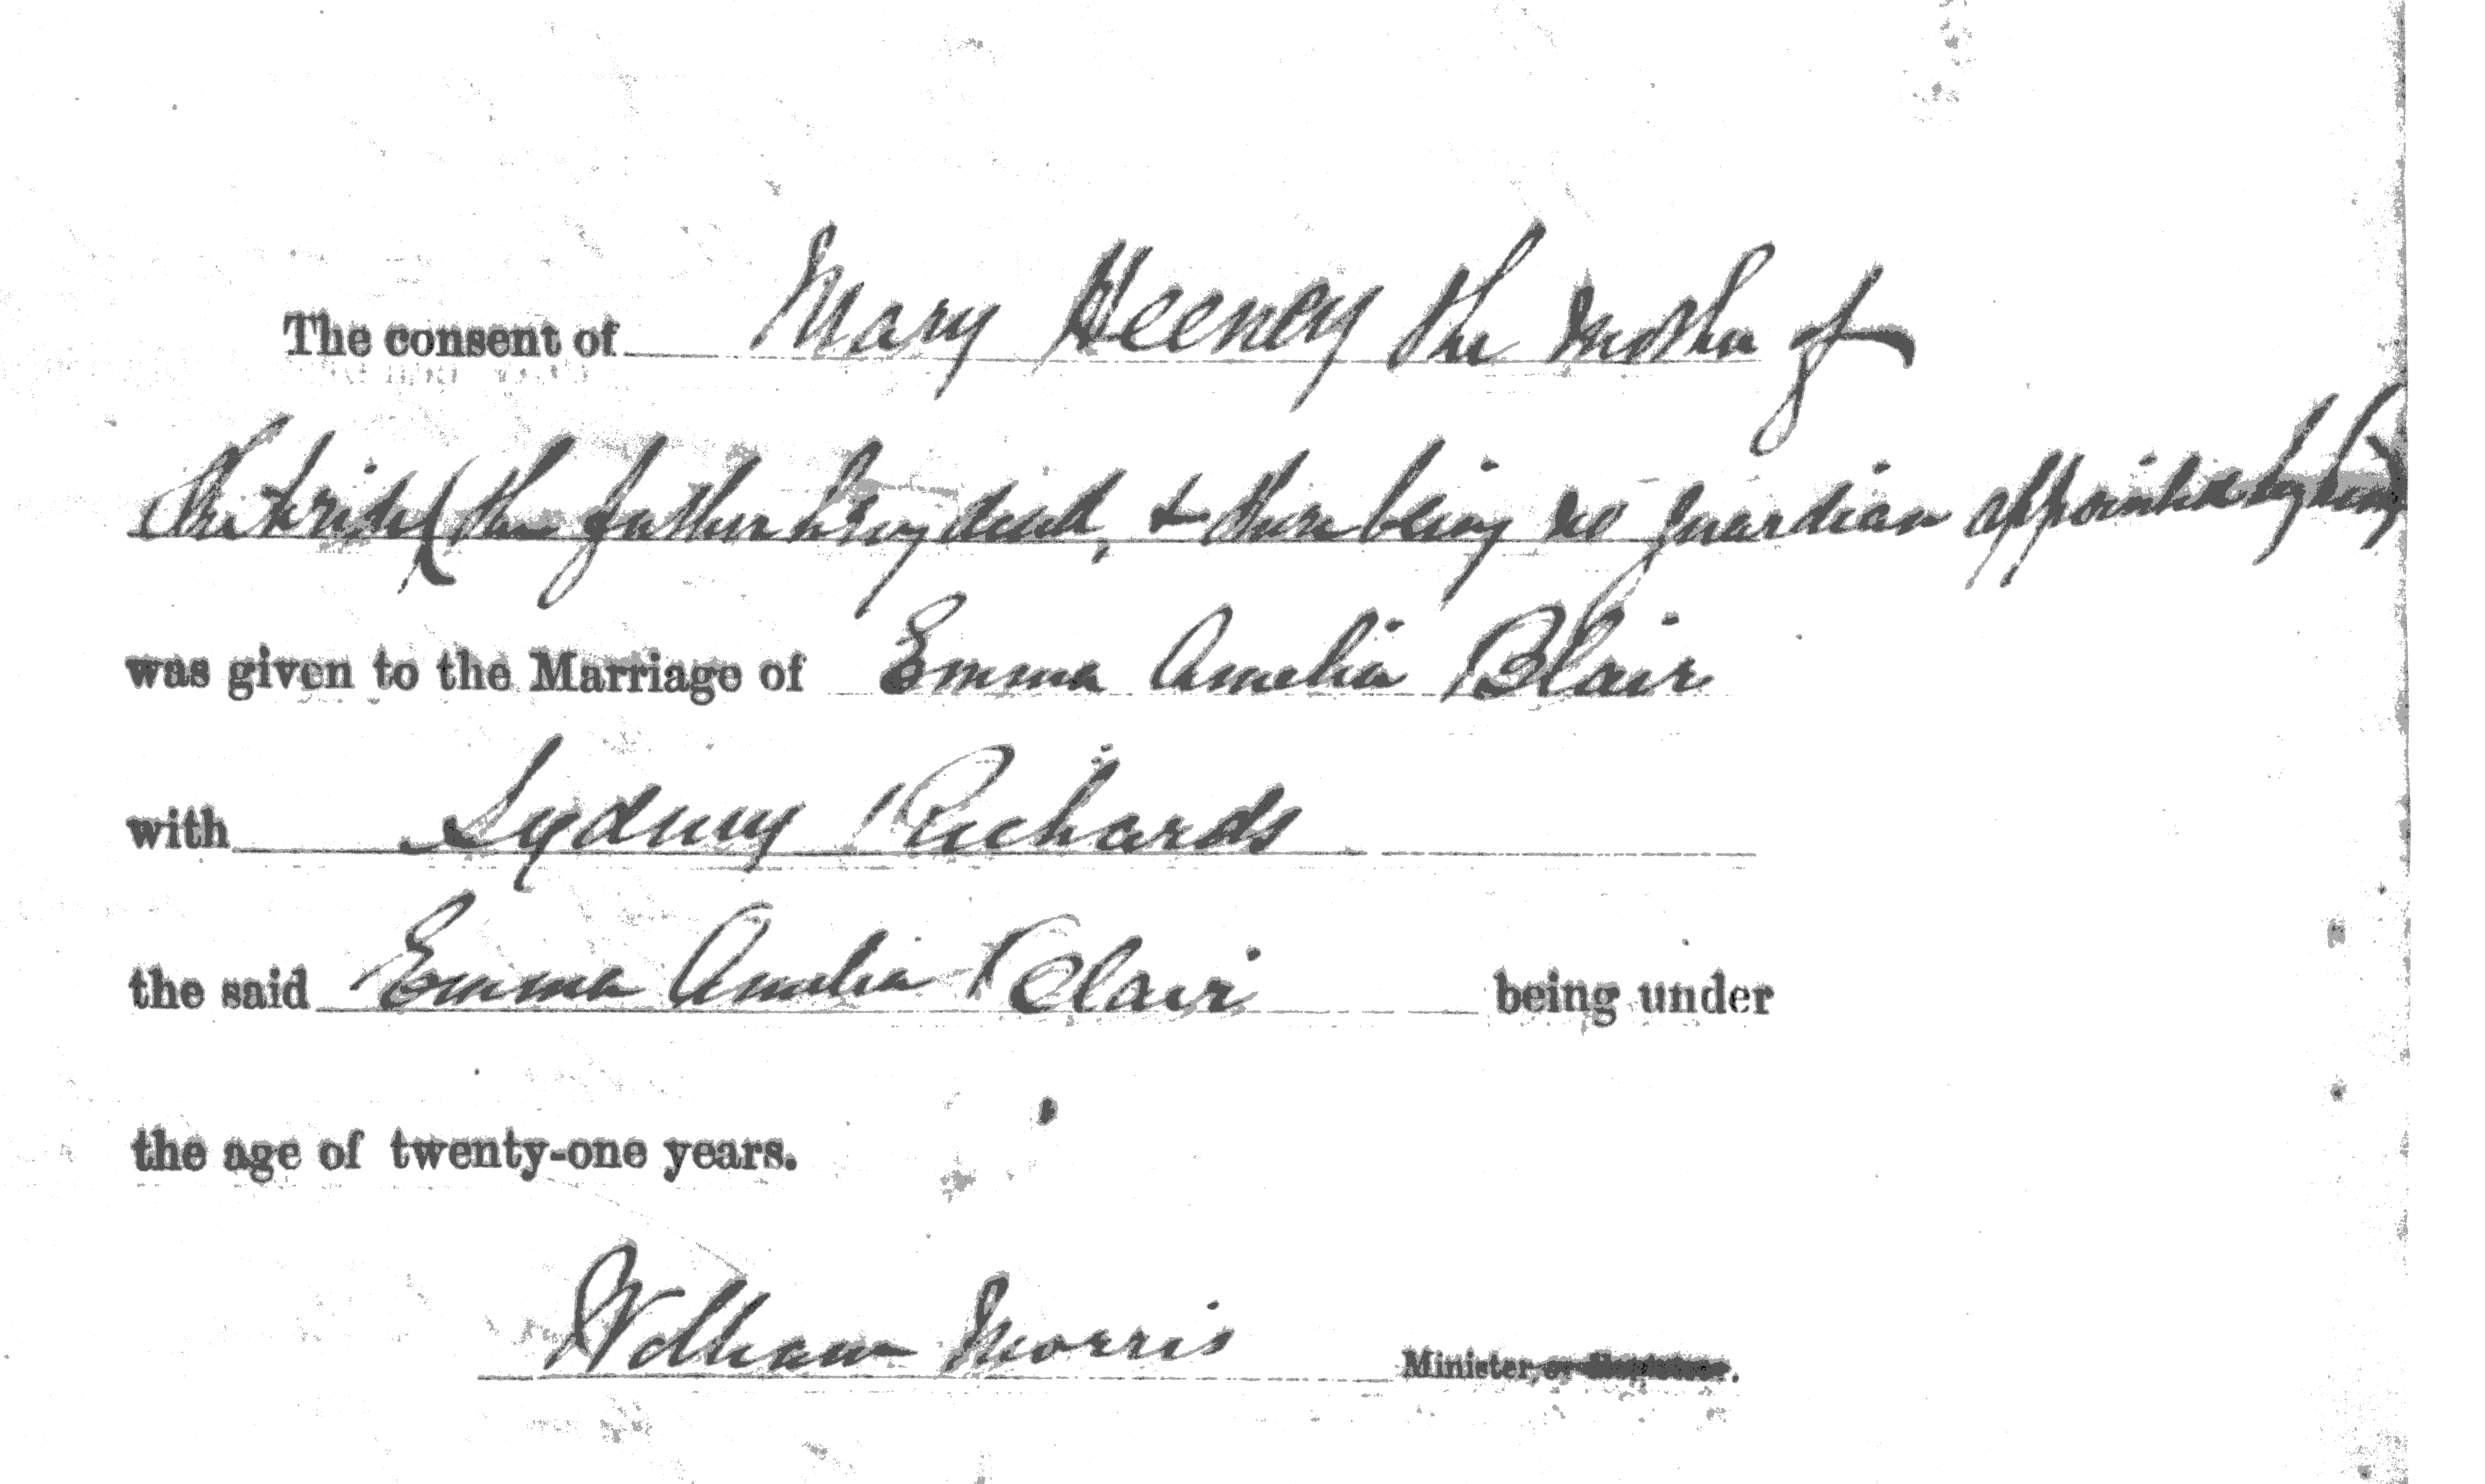 The consent of Mary Heeney the mother of
the bride (the father being dead, & there being no guardian appointed by him)
was given to the Marriage of Emma Amelia Blair
with Sydney Richards
the said Emma Amelia Blair being under
the age of twenty-one years.
William Morris Minister, or Registrar.